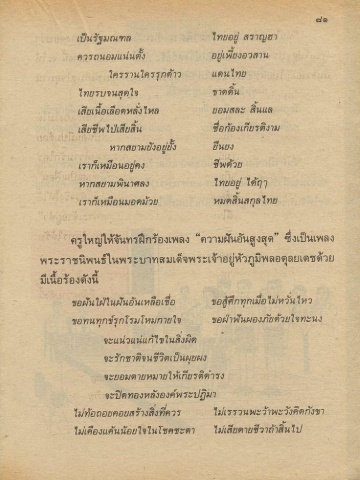 ๘๑
เป็นรัฐมณฑล ไทยอยู่ สราญฮา
ควรถนอมแน่นตั้ง อยู่เพี้ยงอวสาน
ใครรานใครรุกด้าว แดนไทย
ไทยรบจนสุดใจ ขาดดิ้น
เสียเนื้อเลือดหลั่งไหล ยอมสละ สิ้นแล
เสียชีพไป่เสียสิ้น ชื่อก้องเกียรติงาม
หากสยามยังอยู่ยั้ง ยืนยง
เราก็เหมือนอยู่คง ชีพด้วย
หากสยามพินาศลง ไทยอยู่ ได้ฤๅ
เราก็เหมือนมอดม้วย หมดสิ้นสกุลไทย
ครูใหญ่ให้จันทรฝึกร้องเพลง “ความฝันอันสูงสุด” ซึ่งเป็นเพลง
พระราชนิพนธ์ในพระบาทสมเด็จพระเจ้าอยู่หัวภูมิพลอดุลยเดชด้วย
มีเนื้อร้องดังนี้
ขอฝันใฝ่ในฝันอันเหลือเชื่อ ขอสู้ศึกทุกเมื่อไม่หวั่นไหว
ขอทนทุกข์รุกโรมโหมกายใจ ขอฝ่าฟันผองภัยด้วยใจทะนง
จะแน่วแน่แก้ไขในสิ่งผิด
จะรักชาติจนชีวิตเป็นผุยผง
จะยอมตายหมายให้เกียรติดำรง
จะปิดทองหลังองค์พระปฏิมา
ไม่ท้อถอยคอยสร้างสิ่งที่ควร ไม่เรรวนพะว้าพะวังคิดกังขา
ไม่เคืองแค้นน้อยใจในโชคชะตา ไม่เสียดายชีวาถ้าสิ้นไป